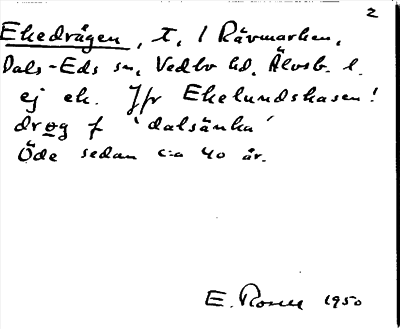 2
Ekedrågen, t, / Rävmarken,
Dals-Eds sn, Vedbo hd, Älvsb. l.
ej ek. Jfr Ekelundskasen!
drog f 'dalsänka'
Öde sedan c:a 40 år.
E. Rosell 1950